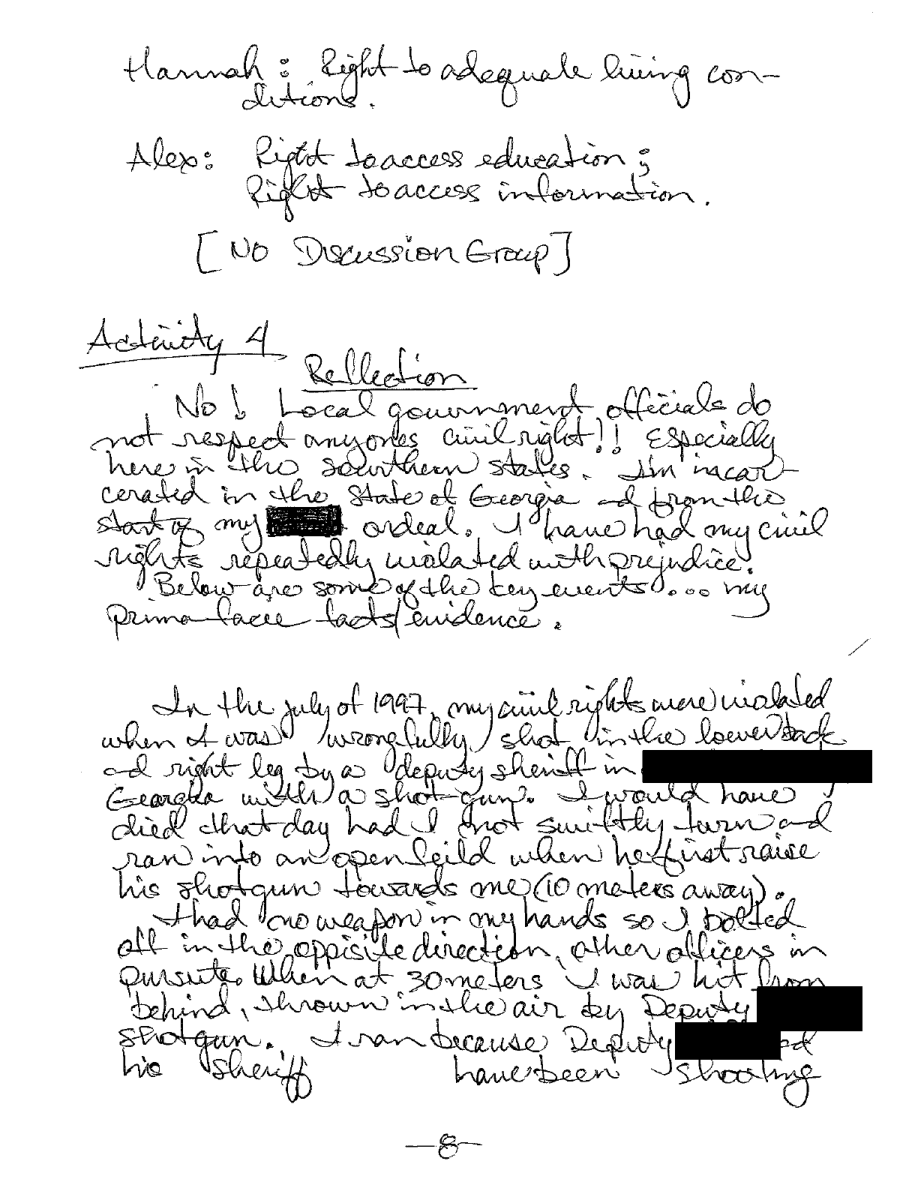 Hannah: Right to adequate living con-
ditions.
Alex: Right to access education;
Right to access information.
[No Discussion Group]
Activity 4
Reflection
No! Local government officials do
not respect anyones civil right!! Especially
here in the sourthern states. I'm incar-
cerated in the State of Georgia and from the
start of my ordeal. I have had my civil
rights repeatedly violated with prejudice.
Below are some of the key events... my
prima facie facts/evidence.
In the july of 1997, my civil rights were violated
when I was wrongfully shot in the lower back
and right leg by a deputy sheriff in
Georgia with a shot-gun. I would have
died that day had I not swiftly turn and
ran into an open feild when he first raise
his shotgun towards me (10 meters away).
I had no weapon in my hands so I bolted
off in the oppisite direction, other officers in
pursute. When at 30 meters I was hit from
behind, thrown in the air by Deputy
shotgun. I ran because Deputy and
his Sheriff have been shooting
-8-